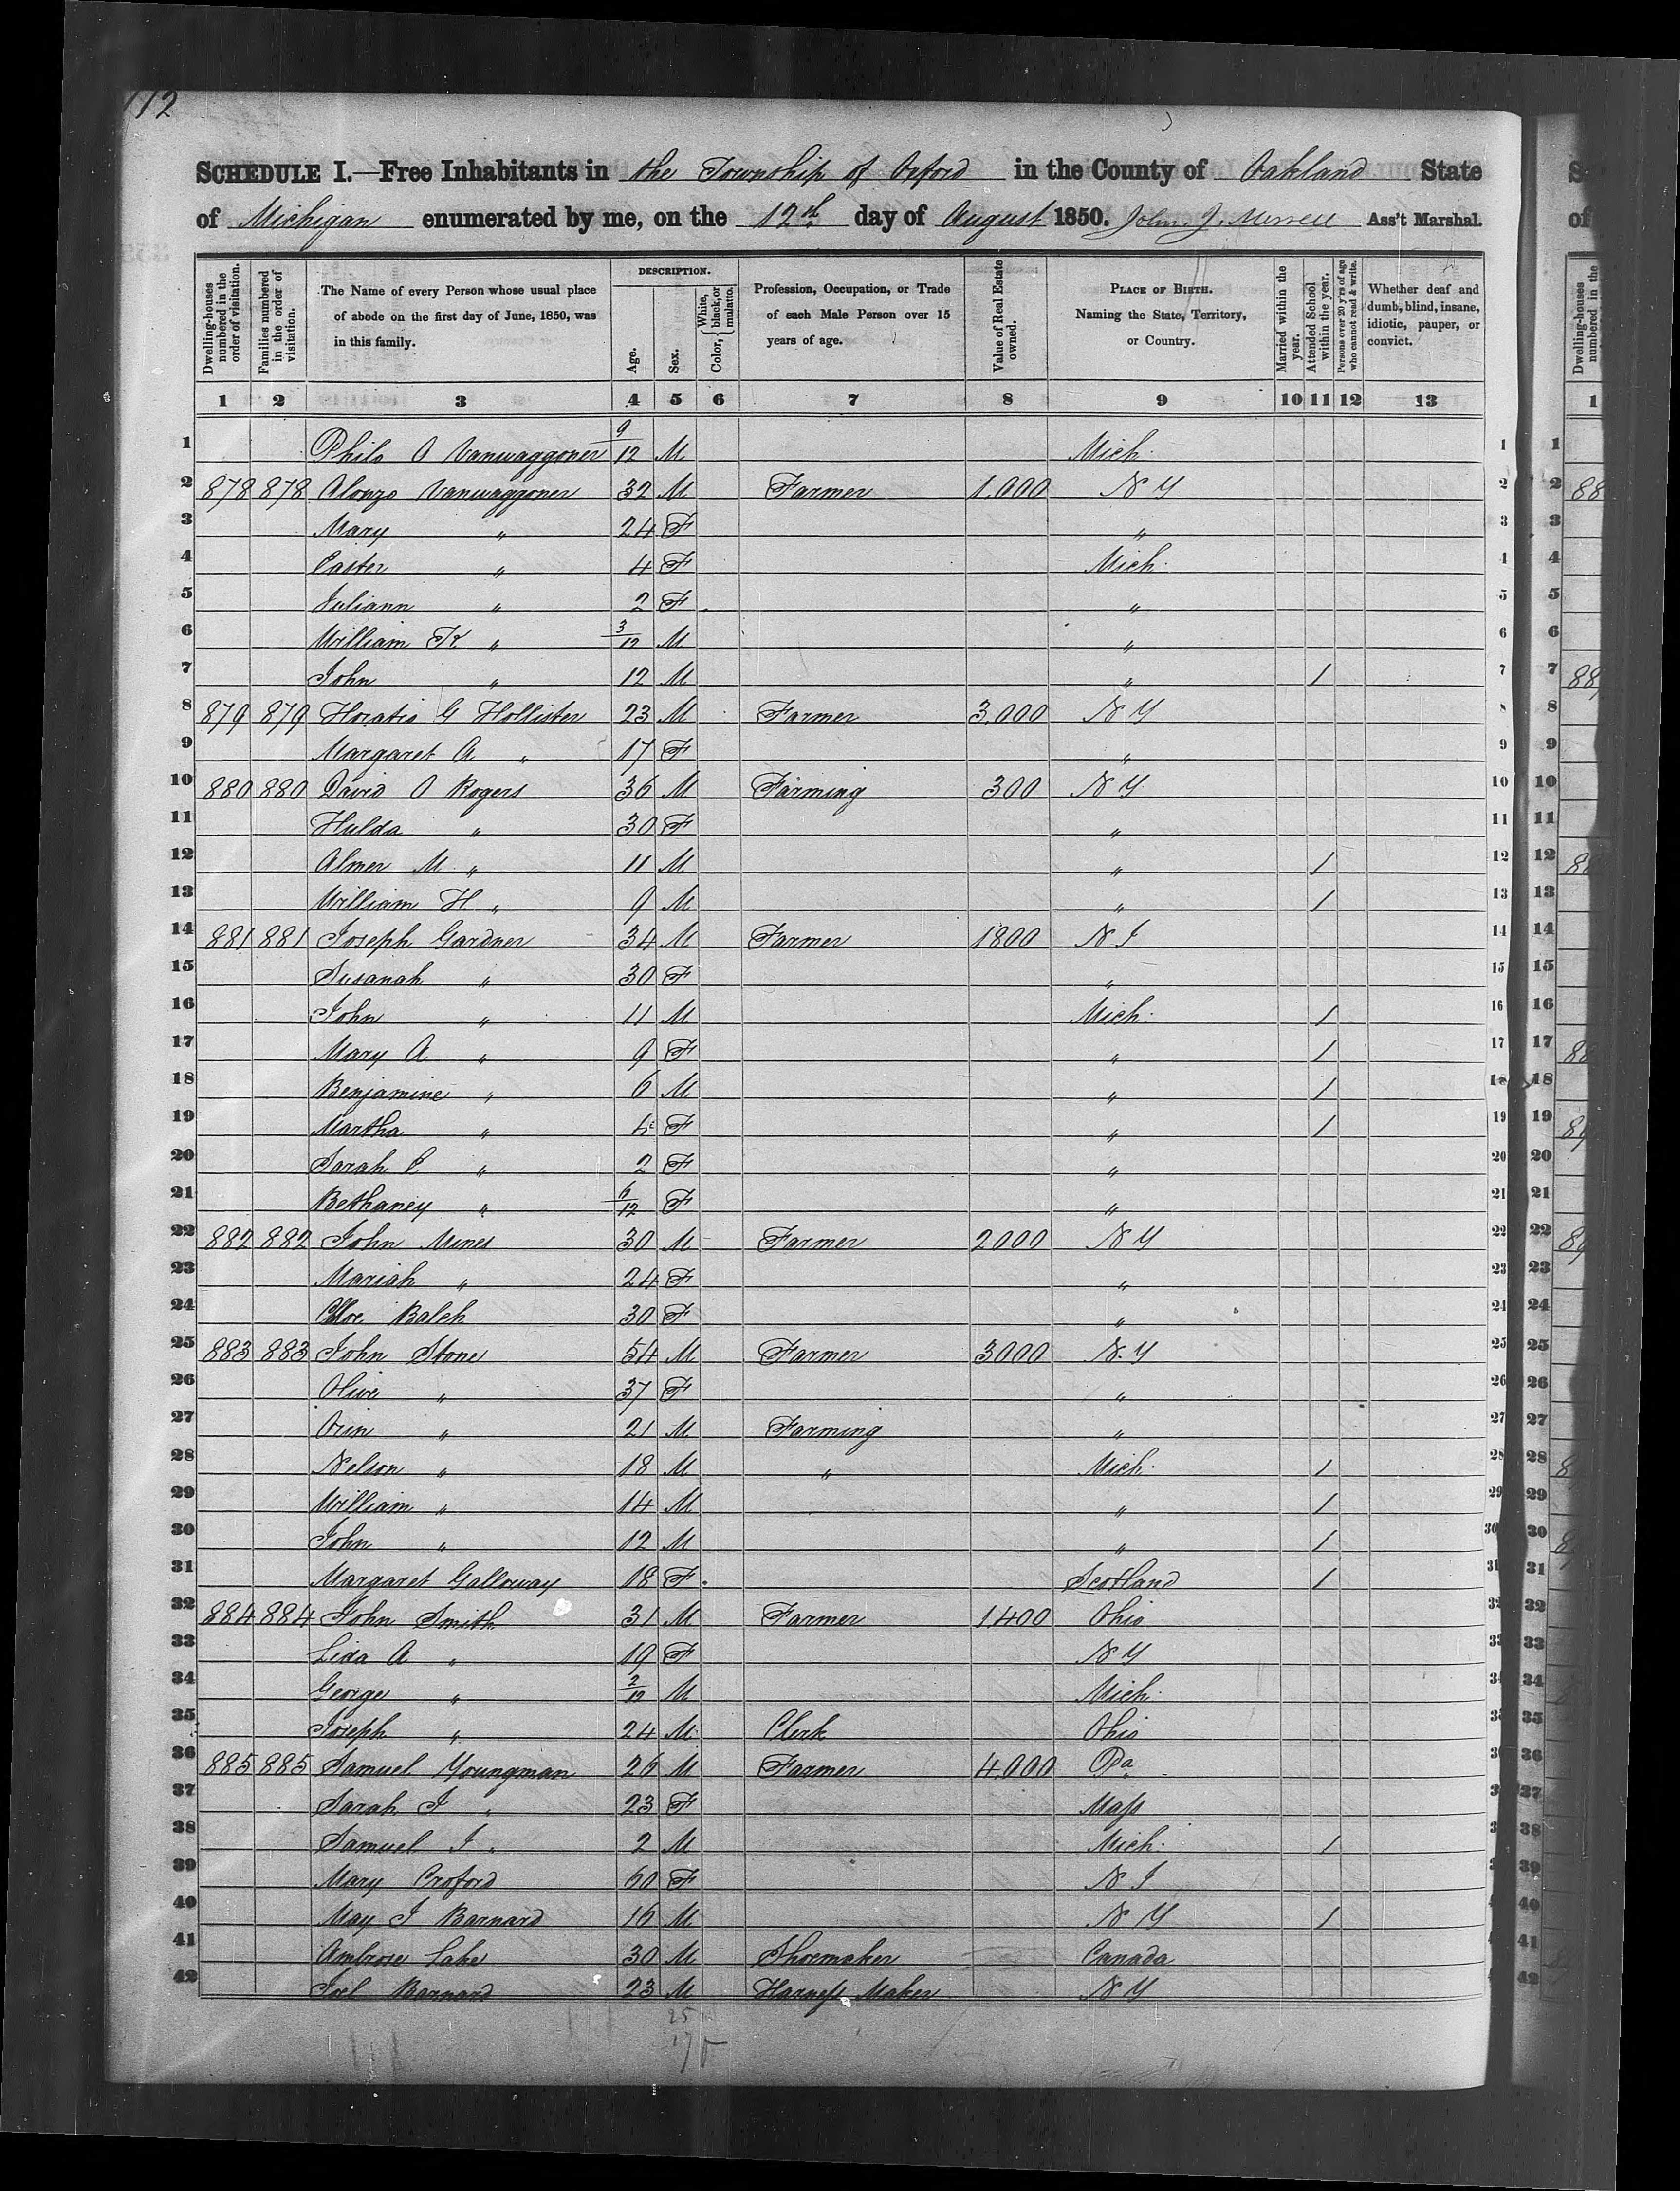 112
SCHEDULE I.—Free Inhabitants in the Township of Oxford in the County of Oakland State
of Michigan enumerated by me, on the 12th day of August 1850. John J. Ass't Marshal.
Dwelling-houses numbered in the order of visitation.
Families numbered in the order of visitation.
The Name of every Person whose usual place of abode on the first day of June, 1850, was in this family.
DESCRIPTION.
Age.
Sex.
Color, { White, black, or mulatto.
Profession, Occupation, or Trade of each Male Person over 15 years of age.
Value of Real Estate owned.
PLACE OF BIRTH. Naming the State, Territory, or Country.
Married within the year.
Attended School within the year.
Persons over 20 y'rs of age who cannot read & write.
Whether deaf and dumb, blind, insane, idiotic, pauper, or convict.
1 2 3 4 5 6 7 8 9 10 11 12 13
1 Philo O Vanwaggoner 9/12 M Mich. 1
2 878 878 Alonzo Vanwaggoner 32 M Farmer 1.000 N Y 2
3 Mary " 24 F " 3
4 Caster " 4 F Mich. 4
5 Juliann " 2 F " 5
6 William K " 3/12 M " 6
7 John " 12 M " / 7
8 879 879 Horatio G Hollister 23 M Farmer 3,000 N Y 8
9 Margaret A " 17 F " 9
10 880 880 David O Rogers 36 M Farming 300 N Y 10
11 Hulda " 30 F " 11
12 Almer M " 11 M " / 12
13 William H " 9 M " / 13
14 881 881 Joseph Gardner 34 M Farmer 1800 N J 14
15 Susanah " 30 F " 15
16 John " 11 M Mich. / 16
17 Mary A " 9 F " / 17
18 Benjamine " 6 M " / 18
19 Martha " 4 F " / 19
20 Sarah C " 2 F " 20
21 Bethaney " 6/12 F " 21
22 882 882 John Mines 30 M Farmer 2000 N Y 22
23 Mariah " 24 F " 23
24 Cloe Balch 30 F " 24
25 883 883 John Stone 54 M Farmer 3000 N. Y 25
26 Olive " 37 F " 26
27 Orin " 21 M Farming " 27
28 Nelson " 18 M " Mich. / 28
29 William " 14 M " / 29
30 John " 12 M " / 30
31 Margaret Galloway 18 F Scotland / 31
32 884 884 John Smith 31 M Farmer 1,400 Ohio
33 Lida A " 19 F N Y
34 George " 2/12 M Mich.
35 Joseph " 24 M Clerk Ohio
36 885 885 Samuel Youngman 26 M Farmer 4,000 Pa
37 Sarah J " 23 F Mass
38 Samuel J " 2 M Mich. /
39 Mary Croford 60 F N J
40 May J Barnard 16 M N Y /
41 Ambrose Lake 30 M Shoemaker Canada
42 Joel Barnard 23 M Harness Maker N Y
25